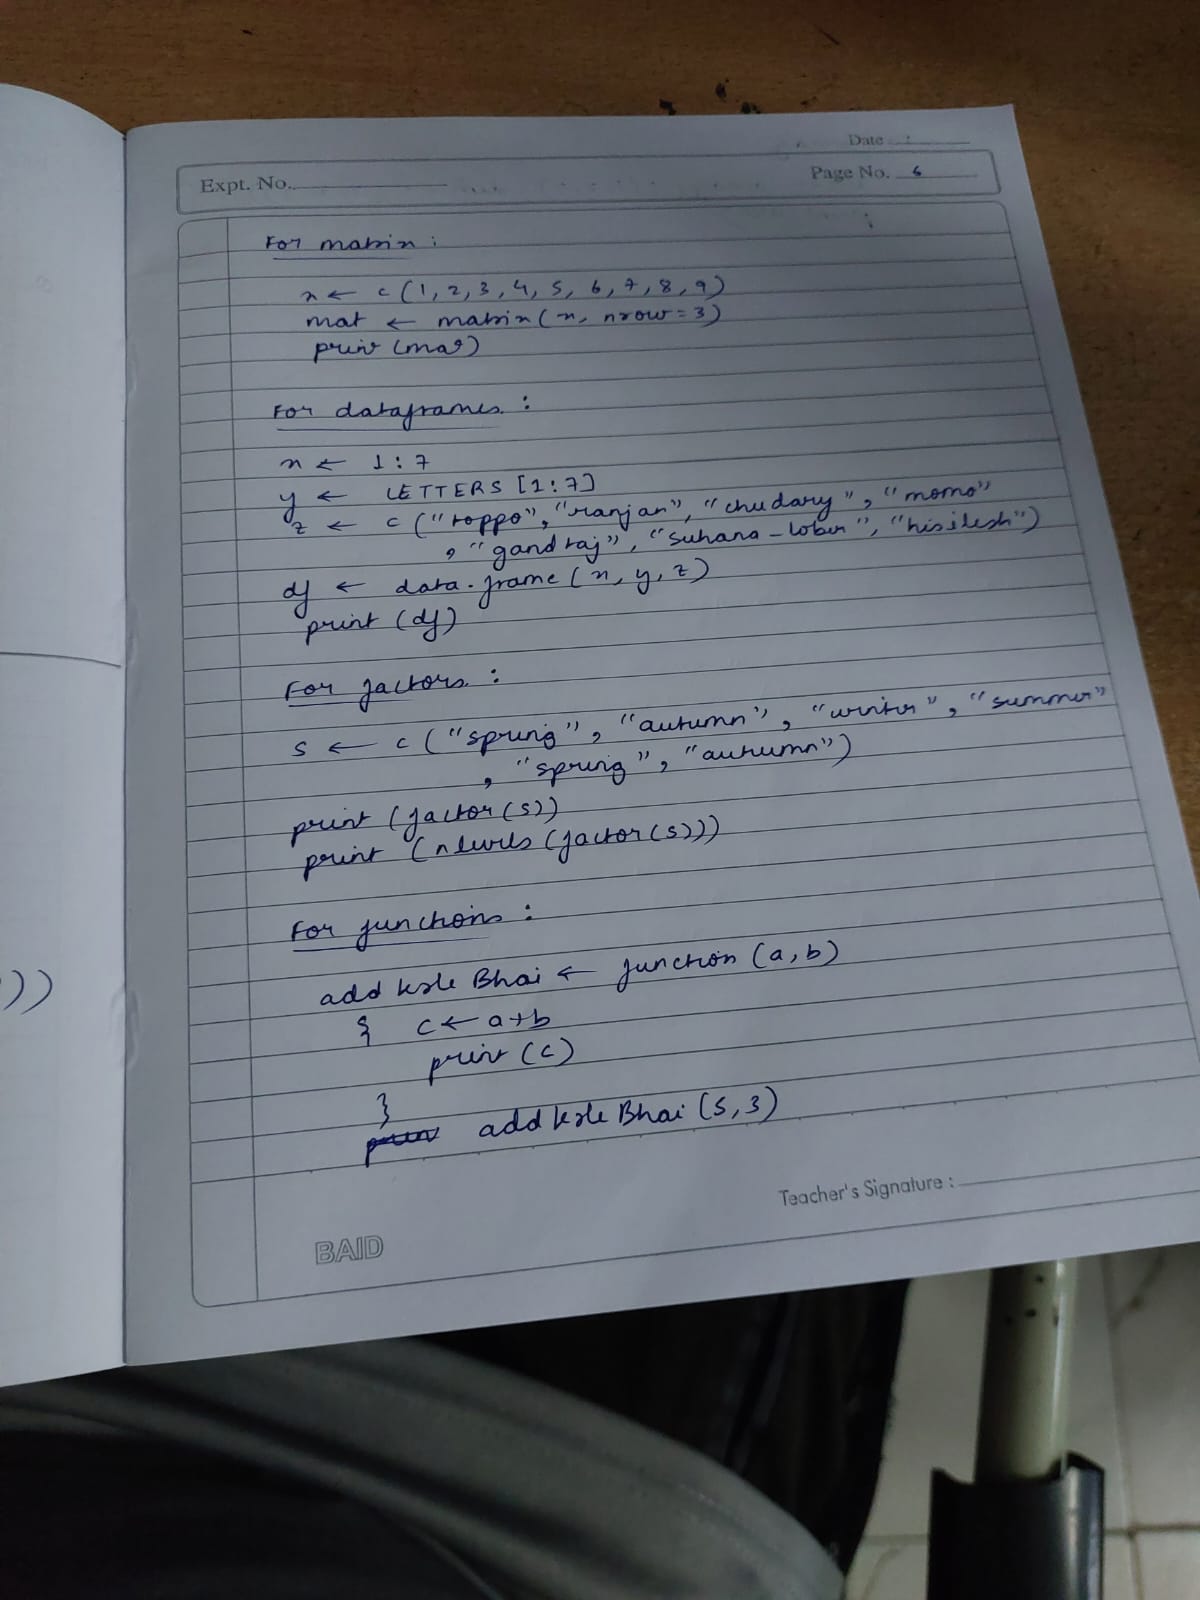 Date :
Expt. No.
Page No. 6
For matrix :
x ← c (1, 2, 3, 4, 5, 6, 7, 8, 9)
mat ← matrix (x, nrow = 3)
print (mat)
For dataframes :
x ← 1 : 7
y ← LETTERS [1:7]
z ← c ("toppo", "ranjan", "chudary", "momo"
, "gand raj", "Suhana - lober", "hisilesh")
df ← data.frame (x, y, z)
print (df)
For factors :
s ← c ("spring", "autumn", "winter", "summer"
, "spring", "autumn")
print (factor (s))
print (nlevels (factor (s)))
For functions :
add ksle Bhai ← function (a, b)
{ c ← a+b
print (c)
}
add ksle Bhai (5, 3)
Teacher's Signature :
BAID
))